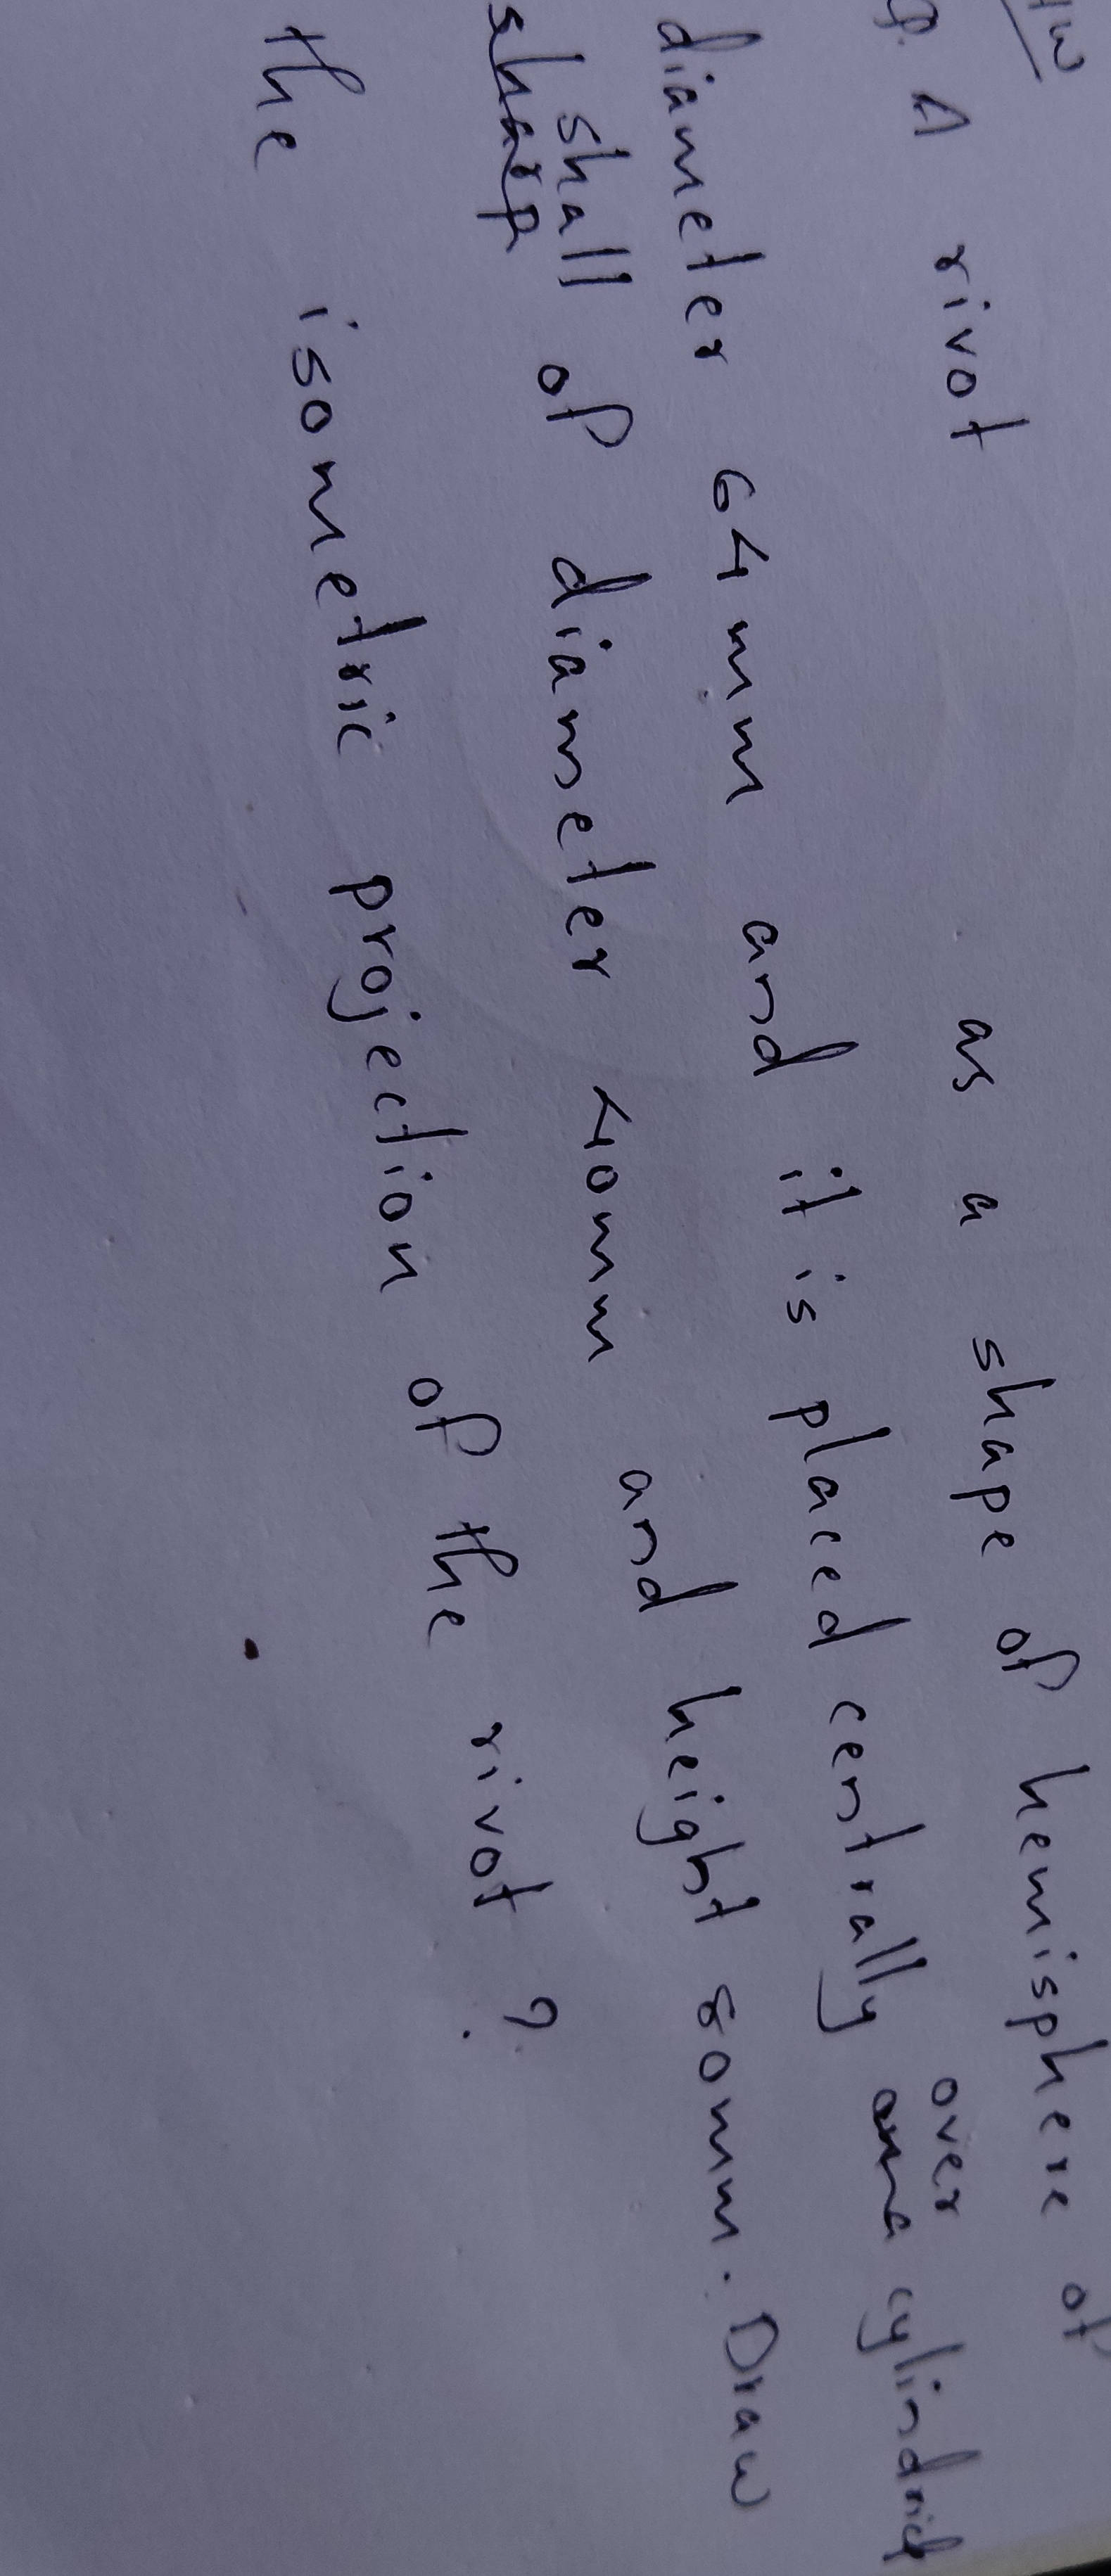 HW
Q. A rivot as a shape of hemisphere of
diameter 64mm and it is placed centrally over a cylindrick
shall of diameter 40mm and height 80mm. Draw
the isometric projection of the rivot ?